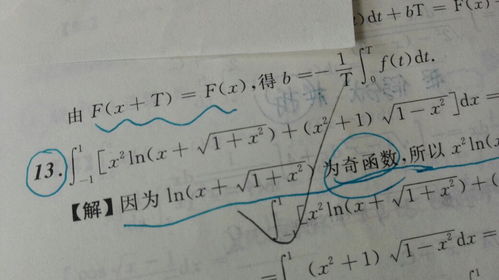 )dt + bT = F(x)
由 F(x + T) = F(x),得 b = -\frac{1}{T}\int_{0}^{T} f(t)dt.
13. \int_{-1}^{1}[x^2\ln(x + \sqrt{1 + x^2}) + (x^2 + 1)\sqrt{1 - x^2}]dx =
【解】因为 \ln(x + \sqrt{1 + x^2}) 为奇函数,所以 x^2\ln(x
\int_{-1}^{1}[x^2\ln(x + \sqrt{1 + x^2}) + (
= \int (x^2 + 1)\sqrt{1 - x^2}dx =